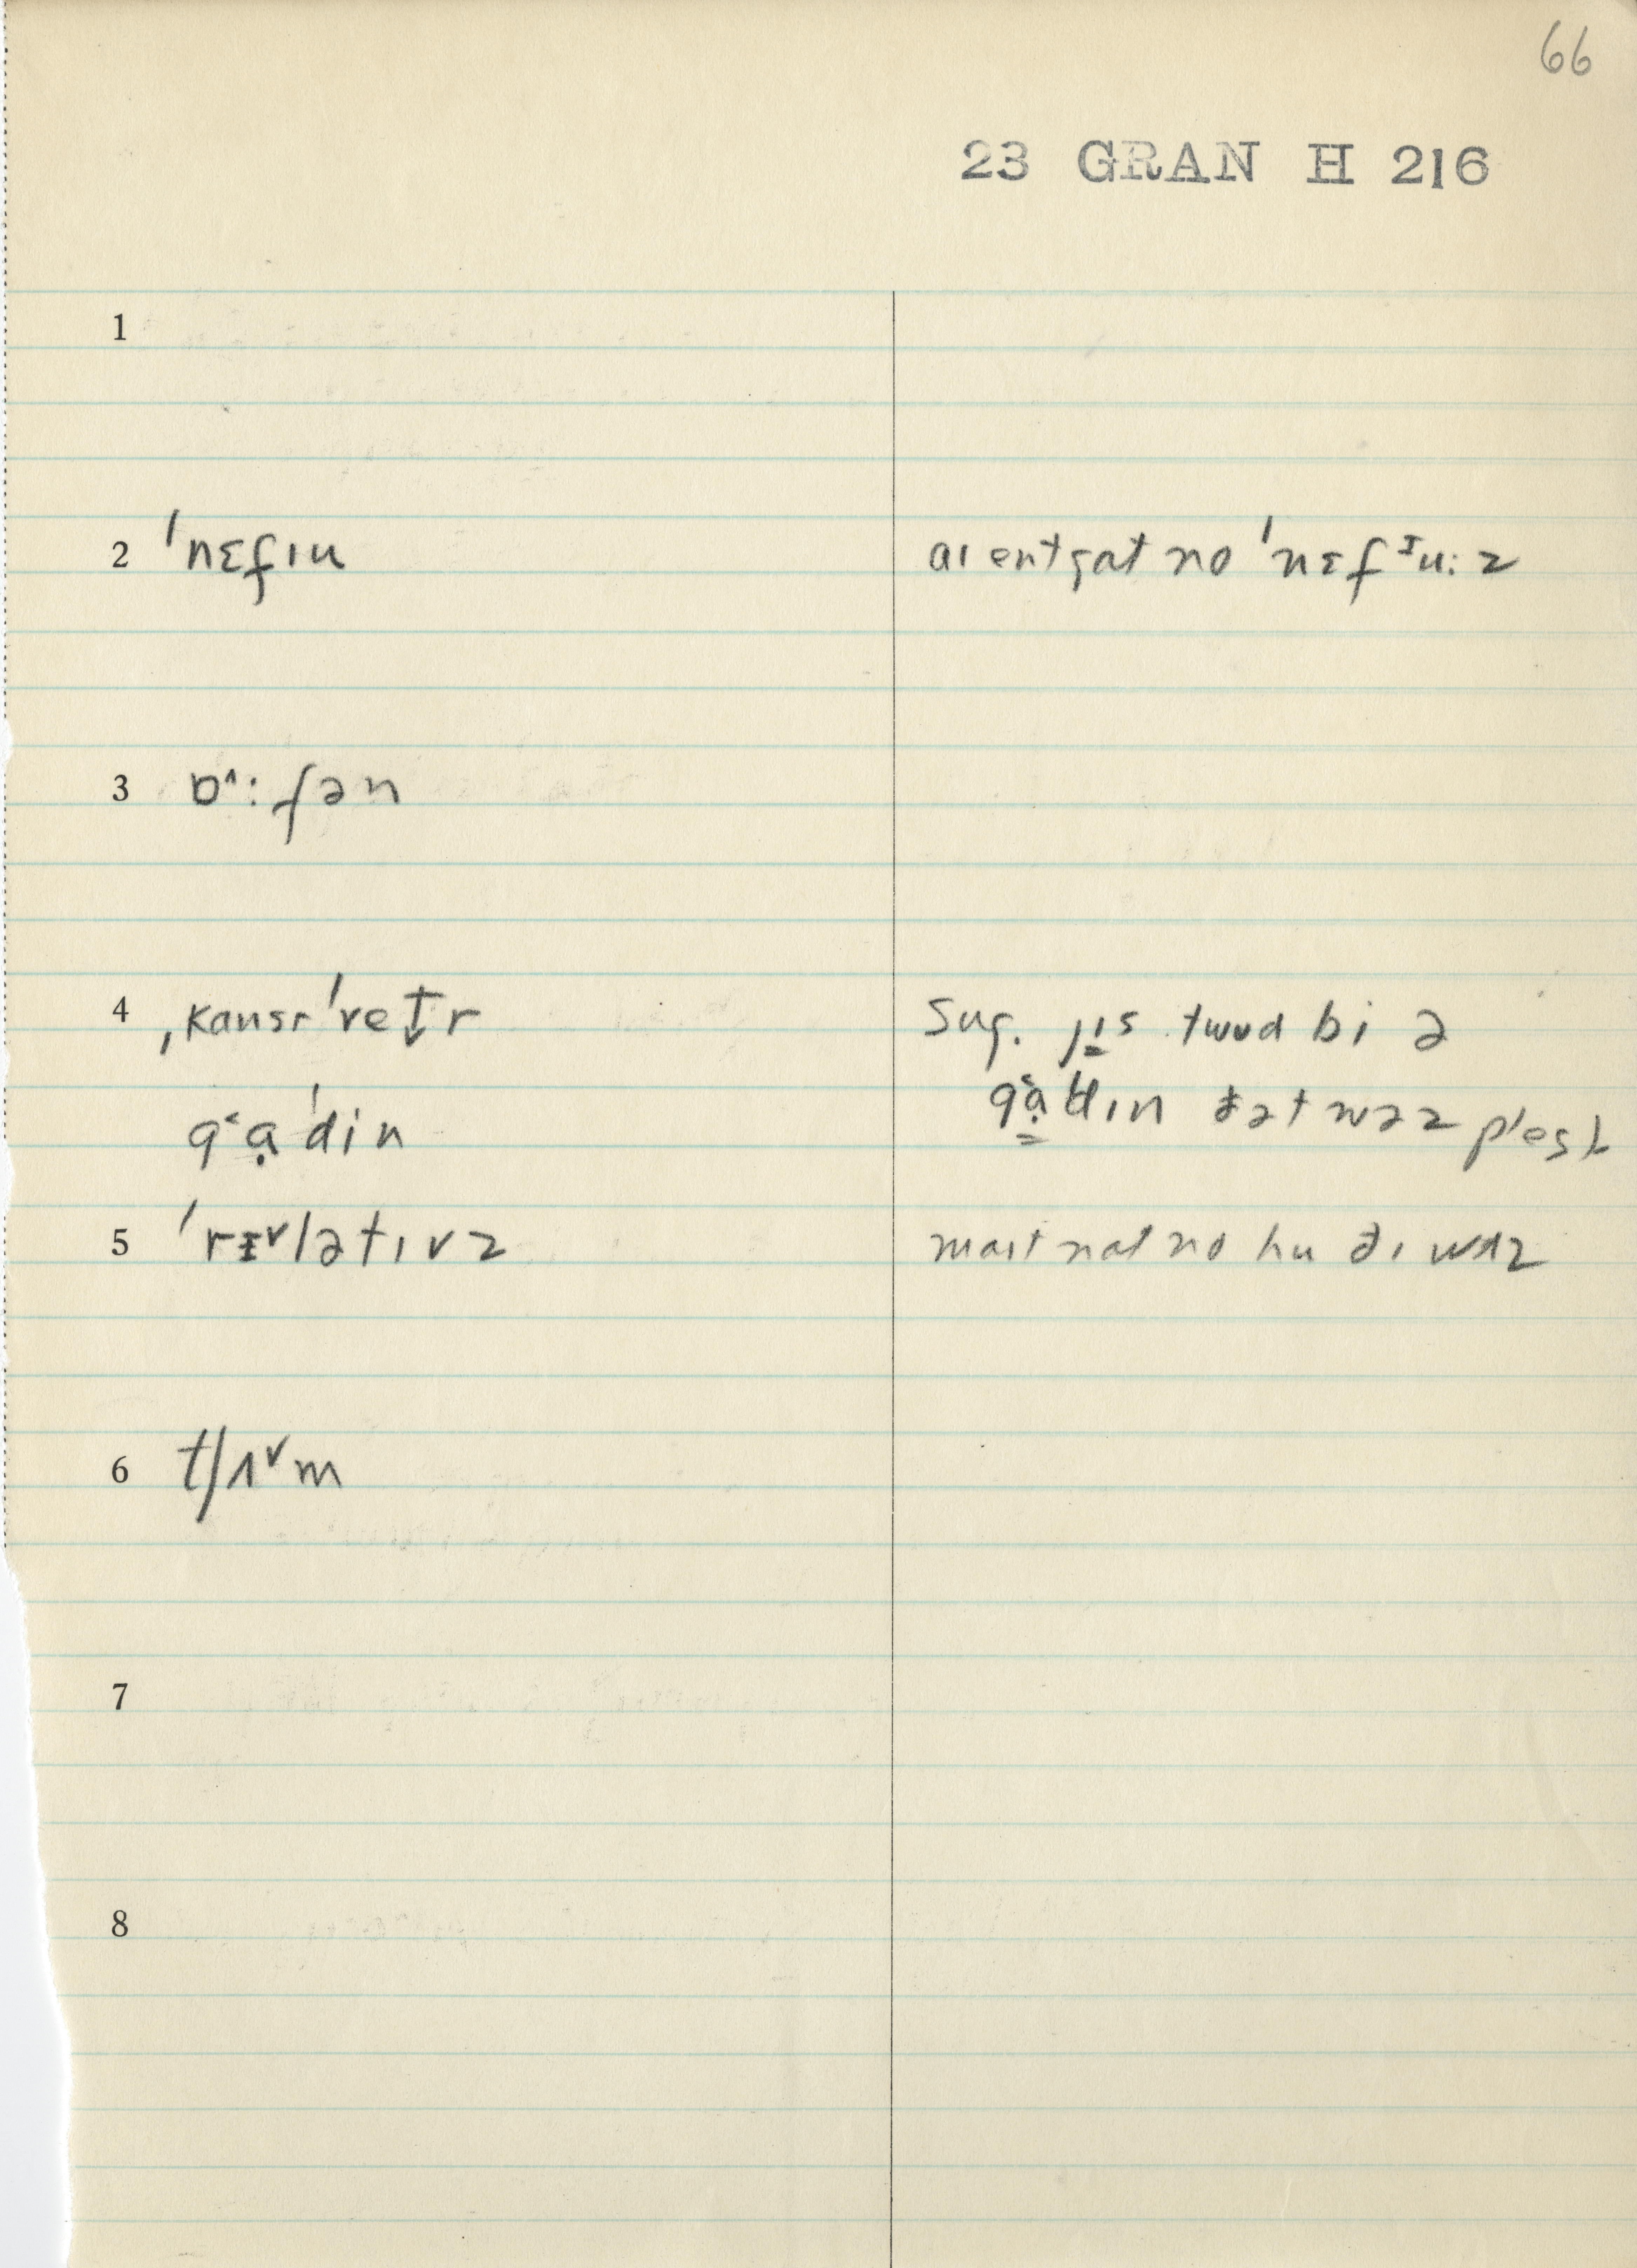 66
23 GRAN H 216
1
2 ˈnɛfɪu
aɪ entgat no ˈnɛfᶦu:z
3 ɒ^:fən
4 ˌkansrˈvetr
Sug. twud bi ə
g˂ạˈdin
ðət wəz
5 ˈrɪ˅lətɪvz
mait nat no hu ðɪ wʌz
6 tʃʌ˅m
7
8